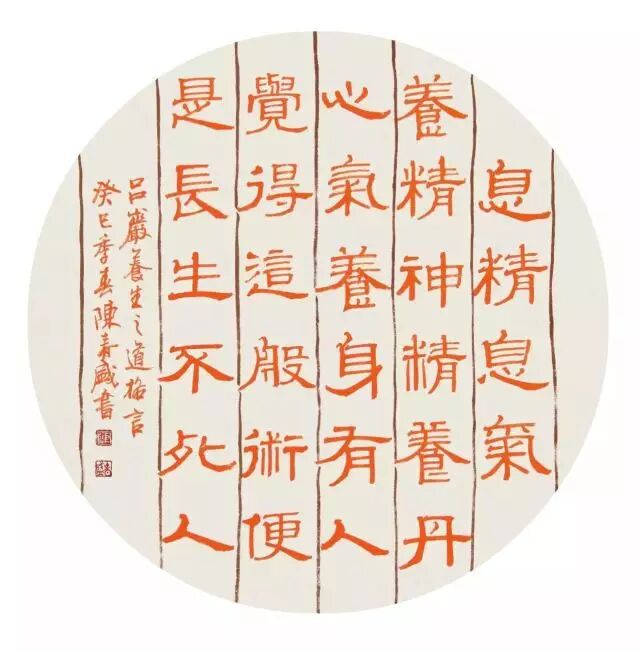 息精息氣
養精神精養丹
心氣養身有人
覺得這般術便
是長生不死人
吕巖養生之道格言
癸巳季春陳青盛書